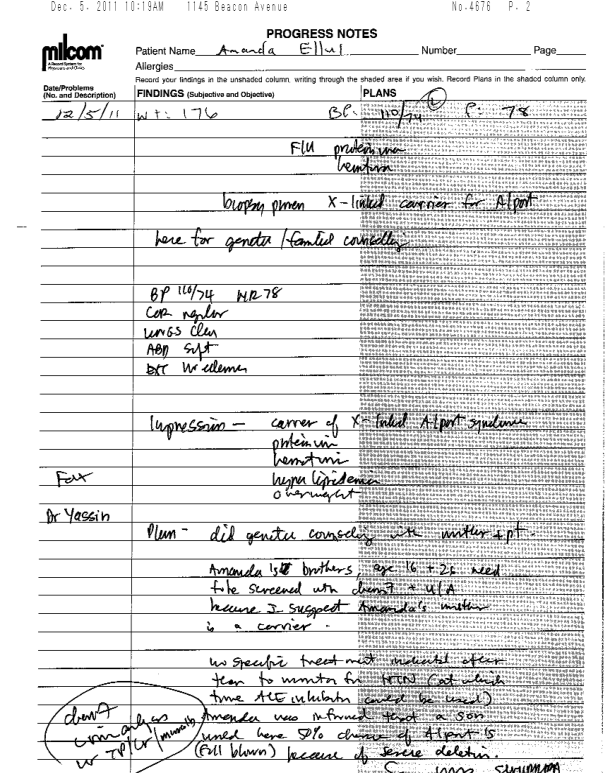 Dec. 5. 2011 10:19AM 1145 Beacon Avenue No.4676 P. 2
PROGRESS NOTES
milcom
Patient Name Amanda Ellul Number Page
Allergies
Record your findings in the unshaded column, writing through the shaded area if you wish. Record Plans in the shaded column only.
Date/Problems
(No. and Description)
FINDINGS (Subjective and Objective) PLANS
12/5/11 wt: 176 BP: 110/74 P: 78
F/U proteinuria
hematuria
biopsy proven X-linked carrier for Alport
here for genetic / familial counselling
BP 110/74 HR 78
COR regular
LUNGS clear
ABD soft
EXT no edema
Impression - carrier of X-linked Alport syndrome
proteinuria
hematuria
Fax hyperlipidemia
overweight
Dr Yassin
Plan - did genetic counseling with mother + pt.
Amanda's brothers, age 16 + 26 need
to be screened with chem7 + U/A
because I suspect Amanda's mother
is a carrier.
no specific treatment indicated other
than to monitor for HTN (at which
time ACE inhibitor could be used)
chem7
urinalysis
Amanda was informed that a son
would have 50% chance of Alport's
(full blown) because of severe deletion.